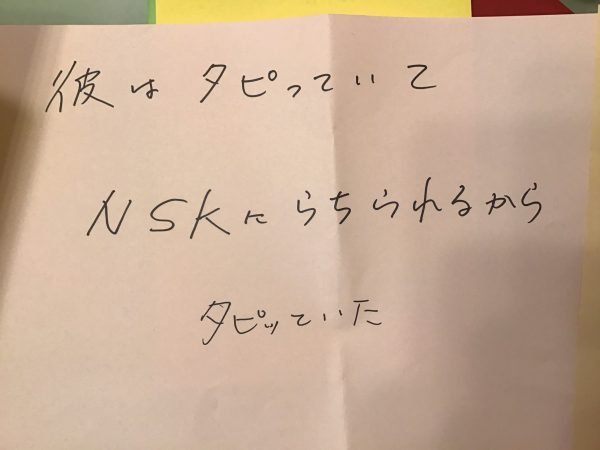 彼はタピっていて
NSKにらちられるから
タピッていた